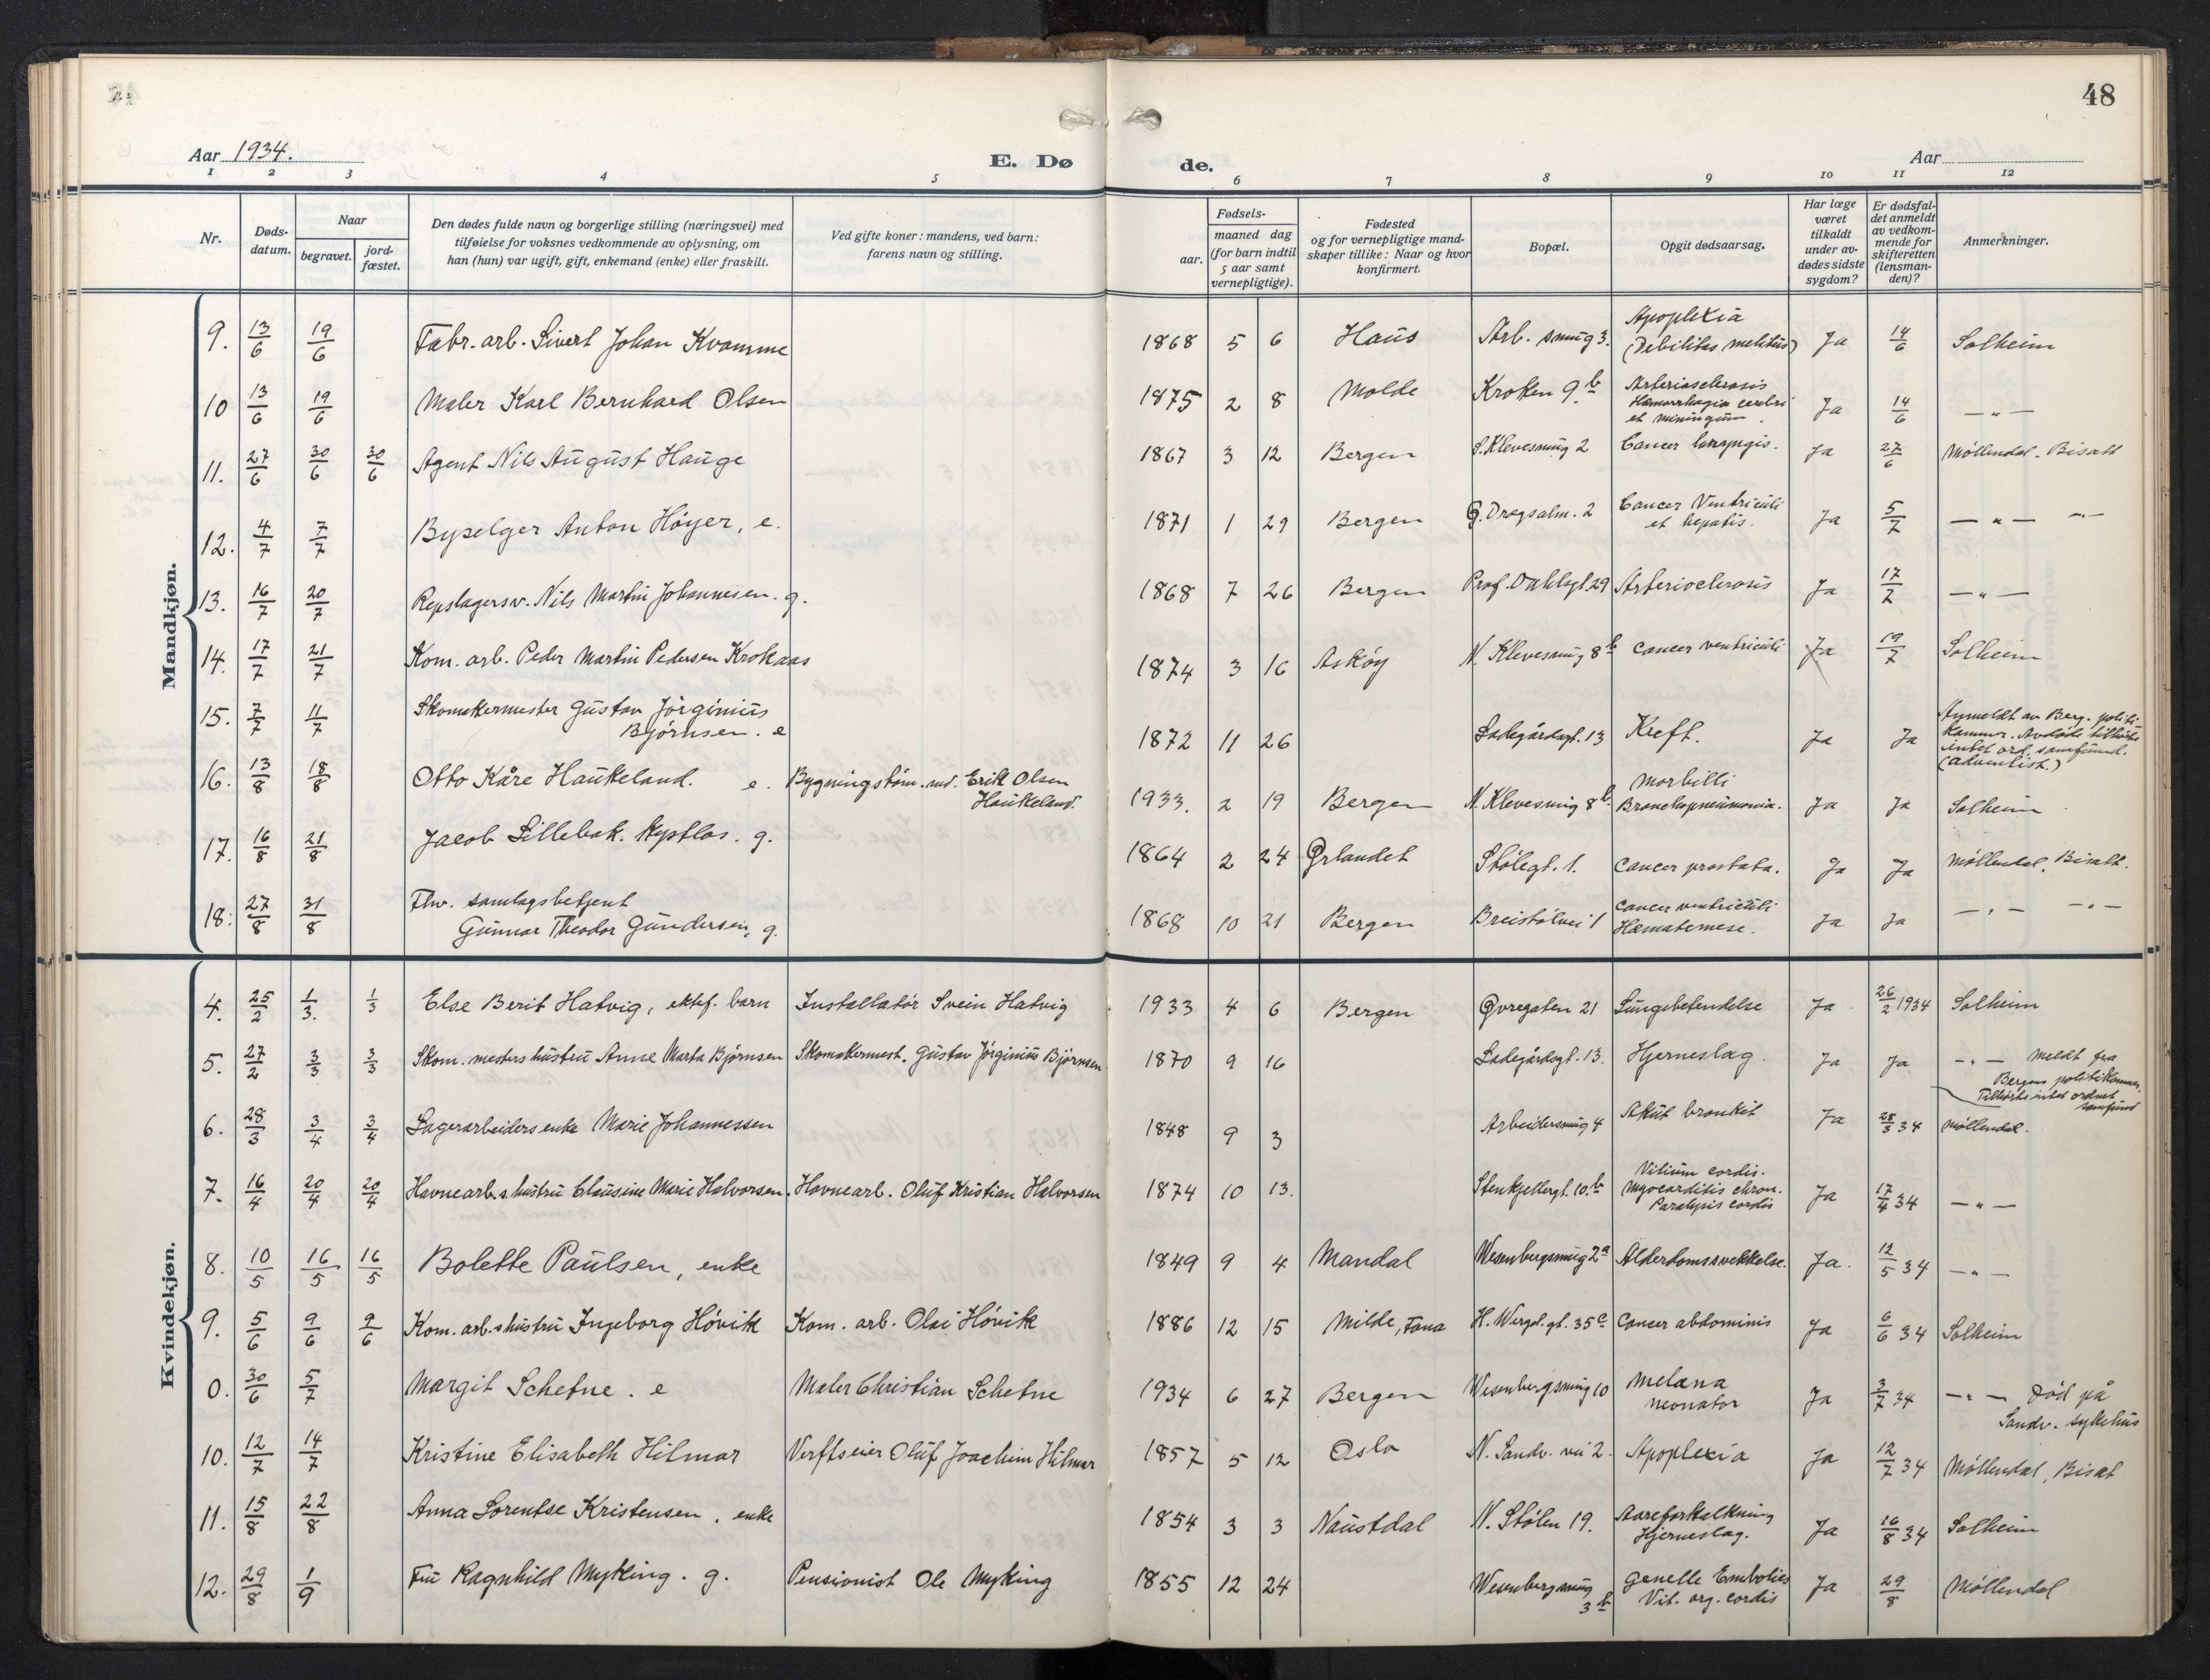 48
Aar 1934.
E. Dø de.
Aar
1 2 3 4 5 6 7 8 9 10 11 12
Nr.
Døds-
datum.
Naar
begravet.
jord-
fæstet.
Den dødes fulde navn og borgerlige stilling (næringsvei) med
tilføielse for voksnes vedkommende av oplysning, om
han (hun) var ugift, gift, enkemand (enke) eller fraskilt.
Ved gifte koner: mandens, ved barn:
farens navn og stilling.
Fødsels-
aar.
maaned dag
(for barn indtil
5 aar samt
vernepligtige).
Fødested
og for vernepligtige mand-
skaper tillike: Naar og hvor
konfirmert.
Bopæl.
Opgit dødsaarsag.
Har læge
været
tilkaldt
under av-
dødes sidste
sygdom?
Er dødsfal-
det anmeldt
av vedkom-
mende for
skifteretten
(lensman-
den)?
Anmerkninger.
Mandkjøn.
9. 13/6 19/6 Fabr. arb. Sivert Johan Kvamme 1868 5 6 Haus Arb. smug 3. Apoplexia
(Debilitas melitus) Ja 14/6 Solheim
10 13/6 19/6 Maler Karl Bernhard Olsen 1875 2 8 Molde Kroken 9b Arteriosclerosis
Hæmorrhagia cerebri
et miningum. Ja 14/6 — " —
11. 27/6 30/6 30/6 Agent Nils August Hauge 1867 3 12 Bergen S. Klevesmug 2 Cancer laryngis. Ja 27/6 Møllendal. Bisatt
12. 4/7 7/7 Byselger Anton Høyer, e. 1871 1 29 Bergen Ø. Dregsalm. 2 Cancer Ventriculi
et hepatis. Ja 5/7 — " — — " —
13. 16/7 20/7 Repslagersv. Nils Martin Johannesen. g. 1868 7 26 Bergen Prof. Dahlsgt. 29 Arterioclerosis Ja 17/7 — " —
14. 17/7 21/7 Kom. arb. Peder Martin Pedersen Krokaas 1874 3 16 Askøy N. Klevesmug 8b Cancer ventriculi Ja 19/7 Solheim
15. 7/7 11/7 Skomakermester Gustav Jørginius
Bjørnsen. e 1872 11 26 Ladegårdsgt. 13 Kreft. Ja Ja Anmeldt av Berg. politi-
kammer. Avdøde tilhørte
intet ord. samfund.
(adventist.)
16. 13/8 18/8 Otto Kåre Haukeland. e. Bygningstøm. md. Erik Olsen
Haukeland. 1933. 2 19 Bergen N. Klevesmug 8b. Morbilli
Bronchopneumonia. Ja Ja Solheim
17. 16/8 21/8 Jacob Lillebak. g. 1864 2 24 Ørlandet Stølegt. 1. Cancer prostata. Ja Ja Møllendal, Bisatt.
18. 27/8 31/8 Fhv. samlagsbetjent
Gunnar Theodor Gundersen, g. 1868 10 21 Bergen Breistølvei 1 Cancer ventriculi
Hæmatemese. Ja Ja — " — — " —
Kvindekjøn.
4. 25/2 1/3. 1/3 Else Berit Hatvig, ektef. barn Installatør Svein Hatvig 1933 4 6 Bergen Øvregaten 21 Lungebetendelse Ja 26/2 1934 Solheim
5. 27/2 3/3 3/3 Skom. mesters hustru Anne Marta Bjørnsen Skomakermest. Gustav Jørginius Bjørnsen 1870 9 16 Ladegårdsgt. 13. Hjerneslag. Ja Ja — " — Meldt fra
Bergens politikammer.
Tilhørte intet ordnet
samfund
6. 28/3 3/4 3/4 Lagerarbeiders enke Marie Johannessen 1848 9 3 Arbeidersmug 4 Akut bronkit Ja 28/3 34 Møllendal.
7. 16/4 20/4 20/4 Havnearb.s hustru Clausine Marie Halvorsen. Havnearb. Oluf Kristian Halvorsen 1874 10 13. Stenkjellergt. 10.b Vitium cordis.
Myocarditis chron.
Paralysis cordis Ja 17/4 34 — " —
8. 10/5 16/5 16/5 Bolette Paulsen, enke 1849 9 4 Mandal Wesenbergsmug 2a Alderdomssvekkelse. Ja. 12/5 34 — " —
9. 5/6 9/6 9/6 Kom. arb.s hustru Ingeborg Høvik Kom. arb. Olai Høvik 1886 12 15 Milde, Fana H. Wergel. gt. 35c Cancer abdominis Ja 6/6 34 Solheim
0. 30/6 5/7 Margit Schetne. e Maler Christian Schetne 1934 6 27 Bergen Wesenbergsmug 10 Melæna
neonator Ja 3/7 34 — " — Død på
Sandv. sykehus
10. 12/7 14/7 Kristine Elisabeth Hilmar Verftseier Oluf Joachim Hilmar 1857 5 12 Oslo N. Sandv. vei 2. Apoplexia Ja 12/7 34 Møllendal, Bisat
11. 15/8 22/8 Anna Lorentse Kristensen. enke 1854 3 3 Naustdal N. Stølen 19. Aareforkalkning
Hjerneslag. Ja 16/8 34 Solheim
12. 29/8 1/9 Fru Ragnhild Myking. g. Pensionist Ole Myking 1855 12 24 Wesenbergsmug
3b Embolies
Vit. org. cordis Ja 29/8 Møllendal